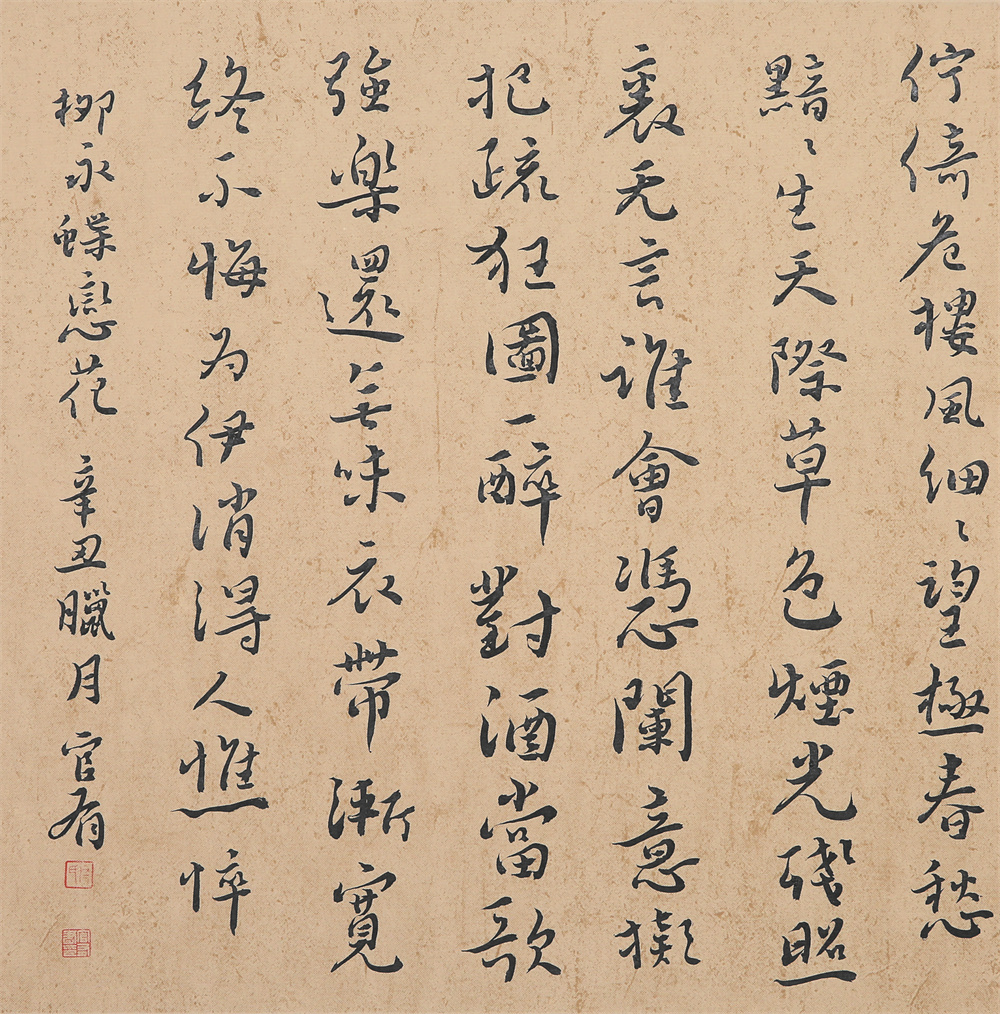 佇倚危樓風細〻望極春愁
黯〻生天際草色煙光殘照
裏无言誰會憑闌意擬
把疏狂圖一醉對酒當歌
強樂還無味衣帶漸寬
終不悔為伊消得人憔悴
柳永蝶戀花 辛丑臘月 官有